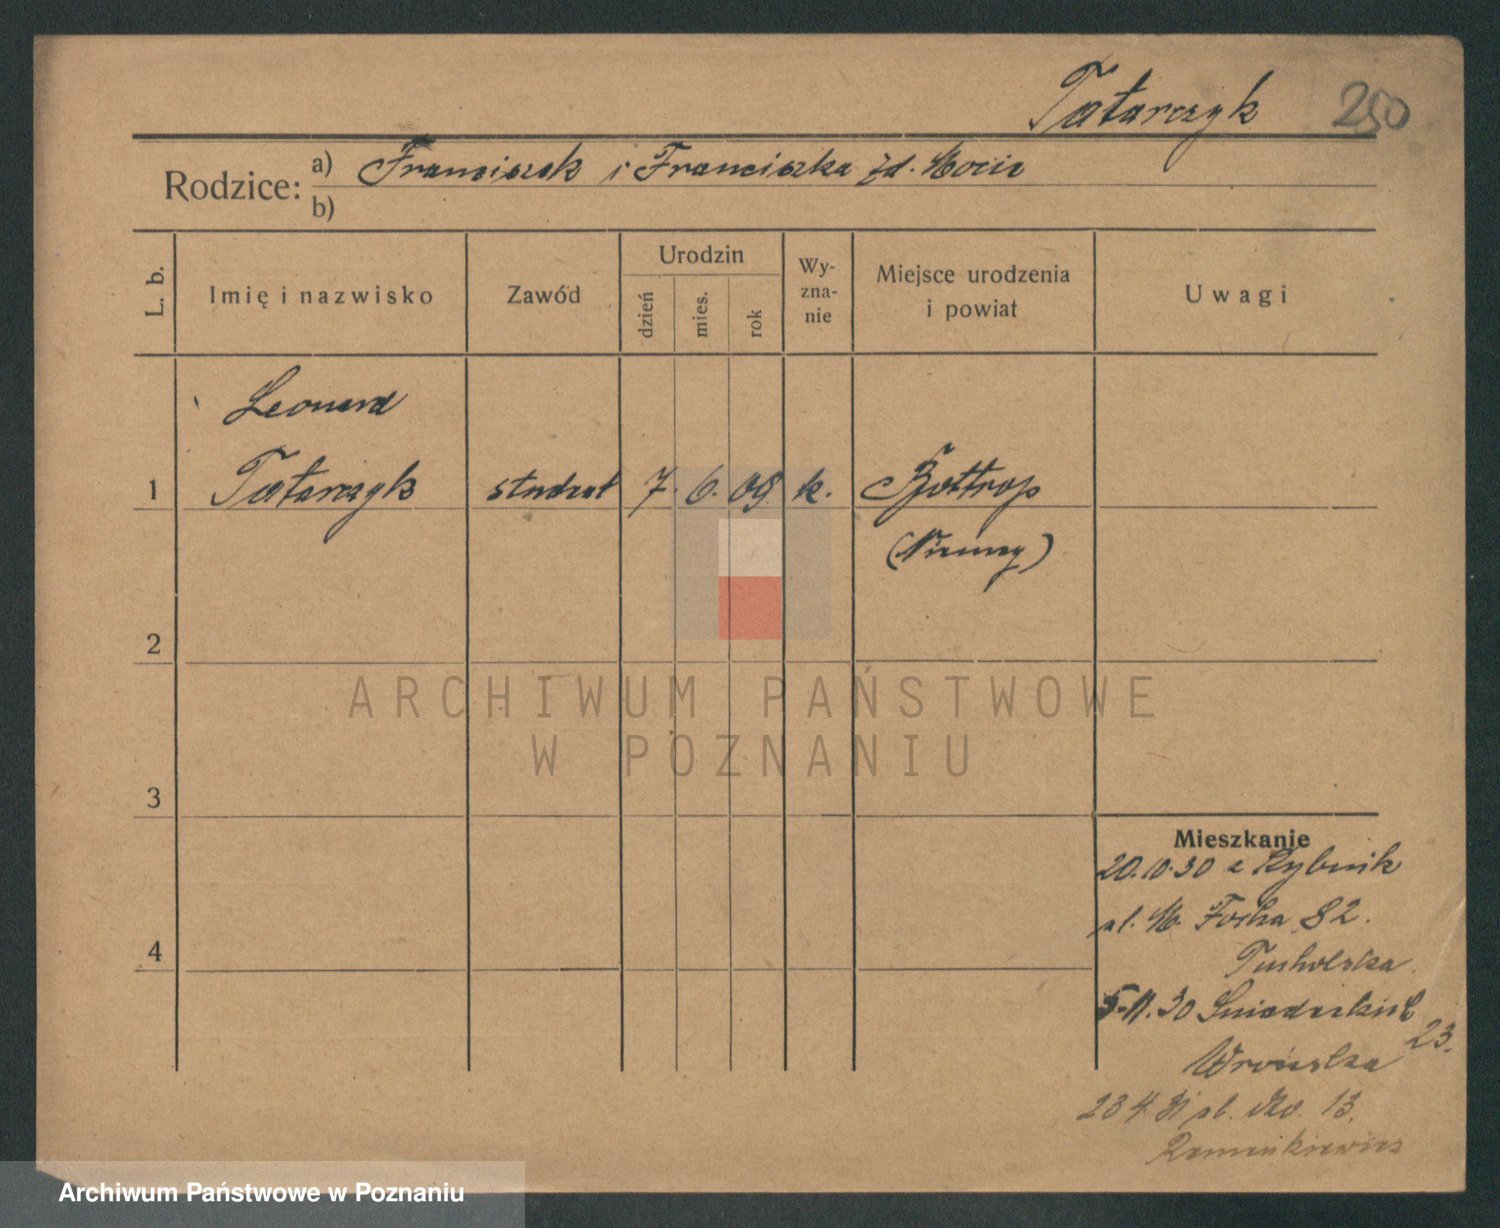 Tatarczyk 250
Rodzice: a) Franciszek i Franciszka zd. Mocie
b)
L. b.
Imię i nazwisko
Zawód
Urodzin
dzień
mies.
rok
Wy-
zna-
nie
Miejsce urodzenia
i powiat
Uwagi
Leonard
1 Tatarczyk student 7. 6. 09. k. Bottrop
(Niemcy)
2
3
4
ARCHIWUM PAŃSTWOWE
W POZNANIU
Mieszkanie
20.10.30 z Rybnik
ul. M. Focha 82.
Tucholska
5.11.30 Śniadeckich
23.
Wrońska
23 4 31 ul. 13.
Archiwum Państwowe w Poznaniu